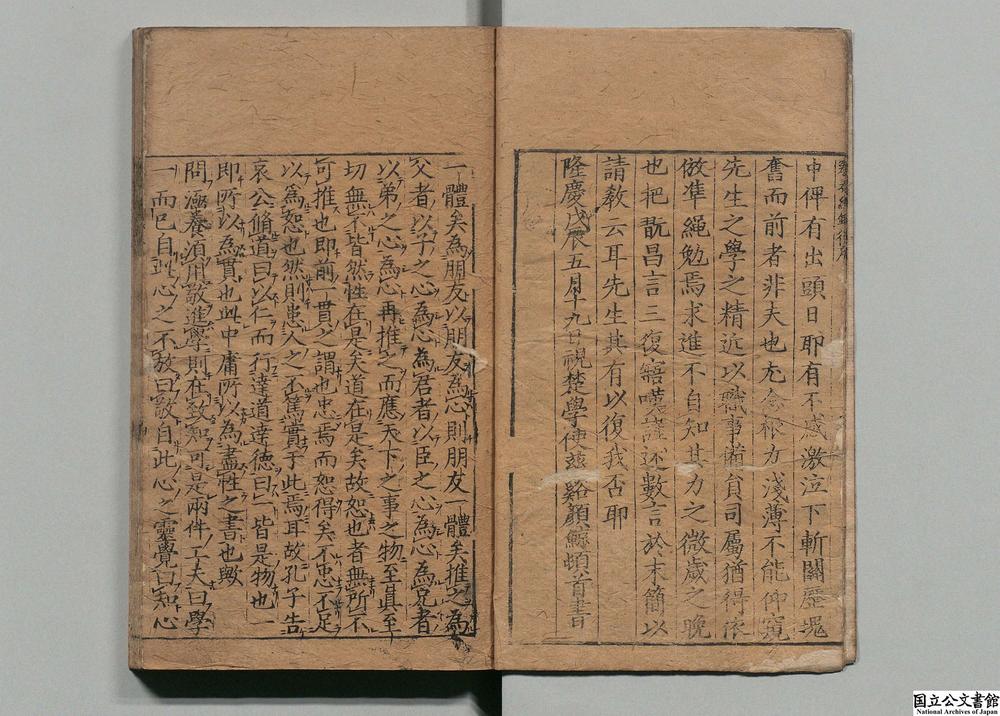 中俾有出頭日即有不感激泣下斬關歷塊
奮而前者非夫也充念根力淺薄不能仰窺
先生之學之精近以職事備員司屬猶得依
倣準繩勉焉求進不自知其力之微歲之晚
也把翫昌言三復寤嘆謹述數言於末簡以
請教云耳先生其有以復我否耶
隆慶戊辰五月十九日視楚學使慈谿顏鯨頓首書
一體矣為朋友以朋友為心則朋友一體矣推之為
父者以子之心為心為君者以臣之心為心為兄者
以弟之心為心再推之而應天下之事之物至真至
切無不皆然性在是矣道在是矣故恕也者無所不
可推也即前一貫之謂也忠焉而恕得矣不忠不足
以為恕也然則患人之不篤實于此焉耳故孔子告
哀公脩道曰以仁而行達道達德曰一皆是物也一
即所以為實也此中庸所以為盡性之書也歟
問涵養須用敬進學則在致知可是兩件工夫曰學
一而已自此心之不放曰敬自此心之靈覺曰知心
国立公文書館
National Archives of Japan